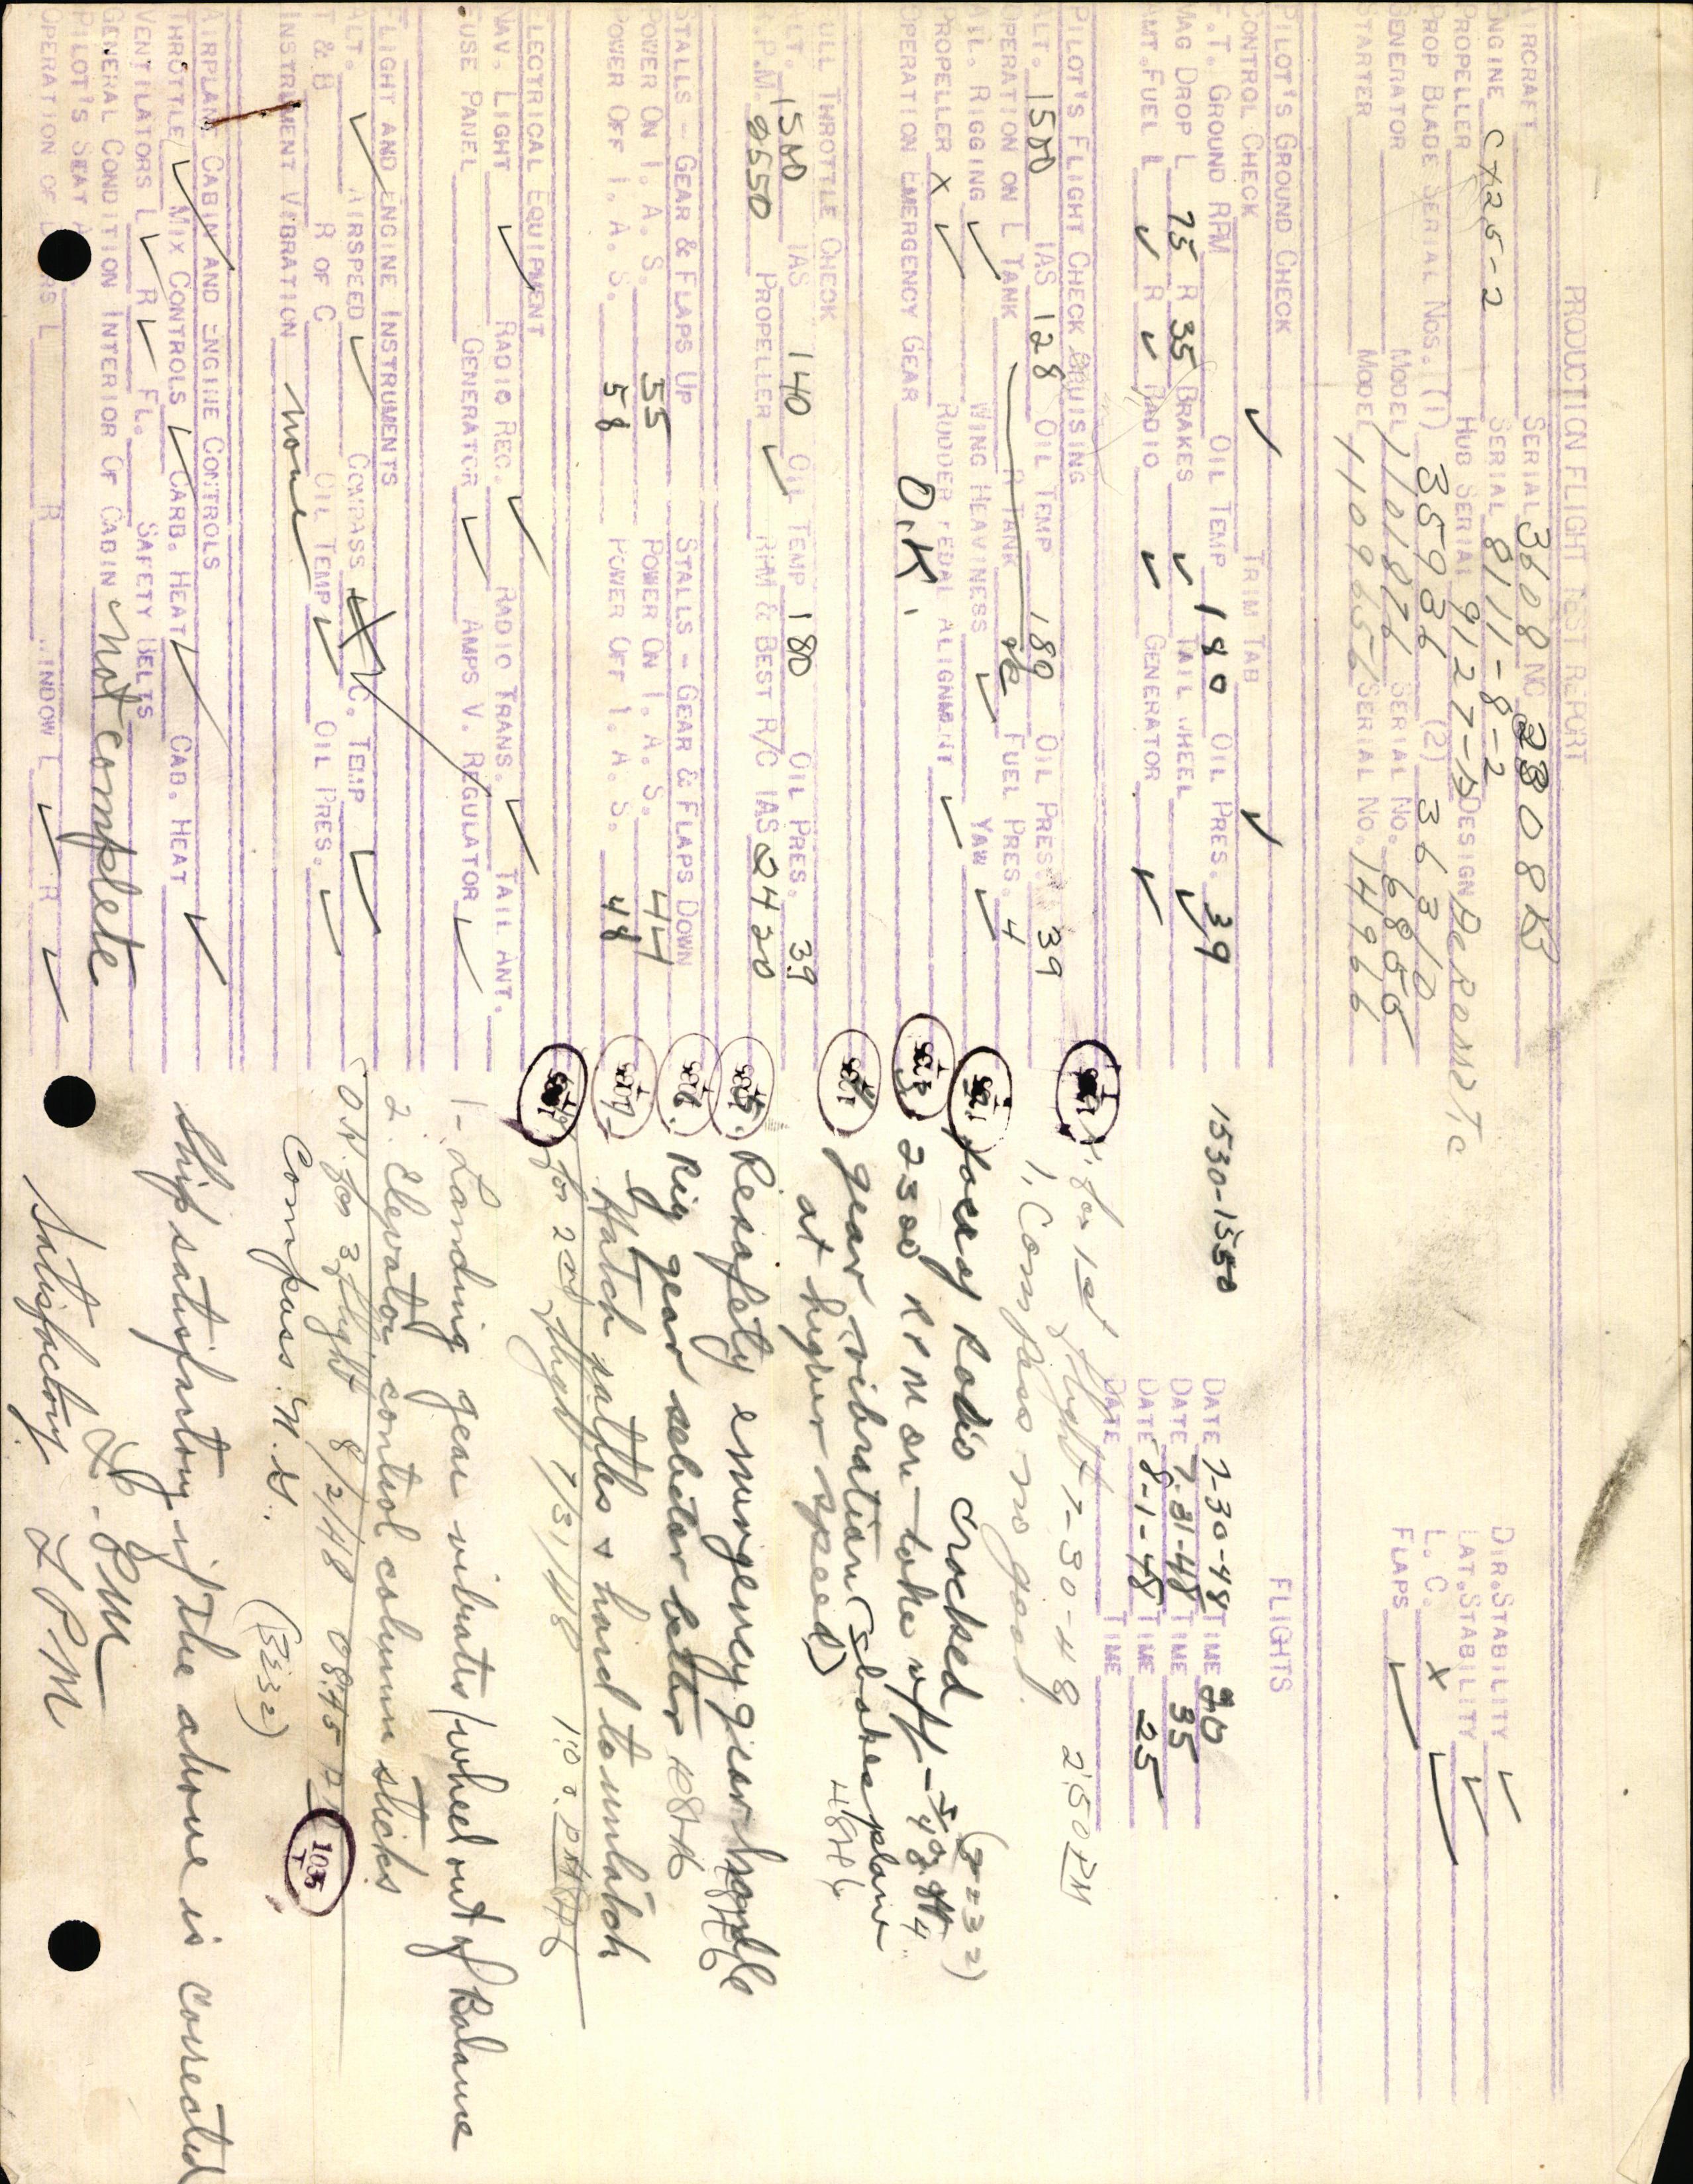 PRODUCTION FLIGHT TEST REPORT
AIRCRAFT SERIAL 3608 NC 2808K
ENGINE C725-2 SERIAL 8111-8-2
PROPELLER HUB SERIAL 9127-D DESIGN
PROP BLADE SERIAL NOS. (1) 35936 (2) 36310
GENERATOR MODEL 1101876 SERIAL NO. 68855
STARTER MODEL 1109656 SERIAL NO. 14966
DIR. STABILITY ✓
LAT. STABILITY ✓
L. C. X ✓
FLAPS ✓
PILOT'S GROUND CHECK
CONTROL CHECK ✓ TRIM TAB ✓
F.T. GROUND RPM OIL TEMP 180 OIL PRES. 39
MAG DROP L 75 R 35 BRAKES ✓ TAIL WHEEL ✓
AMT. FUEL L ✓ R ✓ RADIO ✓ GENERATOR ✓
FLIGHTS
1530-1550 DATE 7-30-48 TIME 20
DATE 7-31-48 TIME 35
DATE 8-1-48 TIME 25
DATE TIME
PILOT'S FLIGHT CHECK CRUISING
ALT. 1500 IAS 128 OIL TEMP 180 OIL PRES. 39
OPERATION ON L TANK R TANK ok FUEL PRES. 4
AIL. RIGGING ✓ WING HEAVINESS ✓ YAW ✓
PROPELLER X ✓ RUDDER PEDAL ALIGNMENT ✓
OPERATION EMERGENCY GEAR O.K.
FULL THROTTLE CHECK
ALT. 1500 IAS 140 OIL TEMP 180 OIL PRES. 39
R.P.M. 2550 PROPELLER ✓ RPM & BEST R/C IAS 2430
STALLS - GEAR & FLAPS UP STALLS - GEAR & FLAPS DOWN
POWER ON I. A. S. 55 POWER ON I. A. S. 44
POWER OFF I. A. S. 58 POWER OFF I. A. S. 48
ELECTRICAL EQUIPMENT
NAV. LIGHT ✓ RADIO REC. ✓ RADIO TRANS. ✓ TAIL ANT.
FUSE PANEL GENERATOR ✓ AMPS V. REGULATOR ✓
FLIGHT AND ENGINE INSTRUMENTS
ALT. ✓ AIRSPEED ✓ COMPASS C. TEMP ✓
T & B R OF C OIL TEMP ✓ OIL PRES. ✓
INSTRUMENT VIBRATION none
AIRPLANE CABIN AND ENGINE CONTROLS
THROTTLE ✓ MIX CONTROLS ✓ CARB. HEAT ✓ CAB. HEAT ✓
VENTILATORS L ✓ R ✓ FL. SAFETY BELTS
GENERAL CONDITION INTERIOR OF CABIN not complete
PILOT'S SEAT
OPERATION OF L R WINDOW L ✓ R ✓
for 1st flight 7-30-48 2:50 PM
1. Compass no good.
Radio cracked (832)
2300 RPM on take off
gear vibration (shakes plane
at higher speed)
Resafety emergency gear handle
Rig gear selector better
Hatch rattles & hard to unlatch
for 2nd flight 7/31/48 1:00 PM
1- Landing gear vibrates (wheel out of Balance
2. Elevator control column sticks
O.K. for 3 flight 8/2/48 08:45
Compass N.G. (832)
1035
Ship satisfactory if the above is corrected
Satisfactory